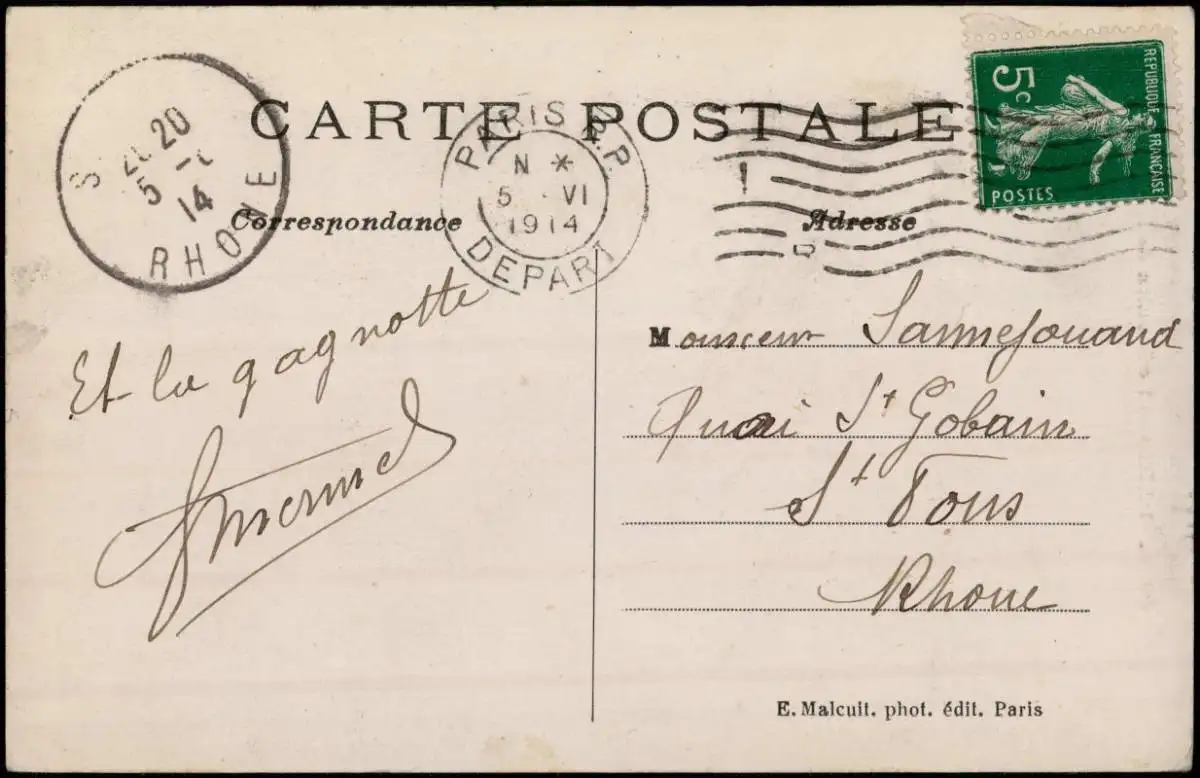 CARTE POSTALE
PARIS R.P.
N *
5 VI
1914
DEPART
S
20
5
14
RHONE
5c
REPUBLIQUE FRANÇAISE
POSTES
Correspondance
Adresse
Et la gagnotte
Monsieur
Quai St Gobain
St Fons
Rhone
E. Malcuit. phot. édit. Paris